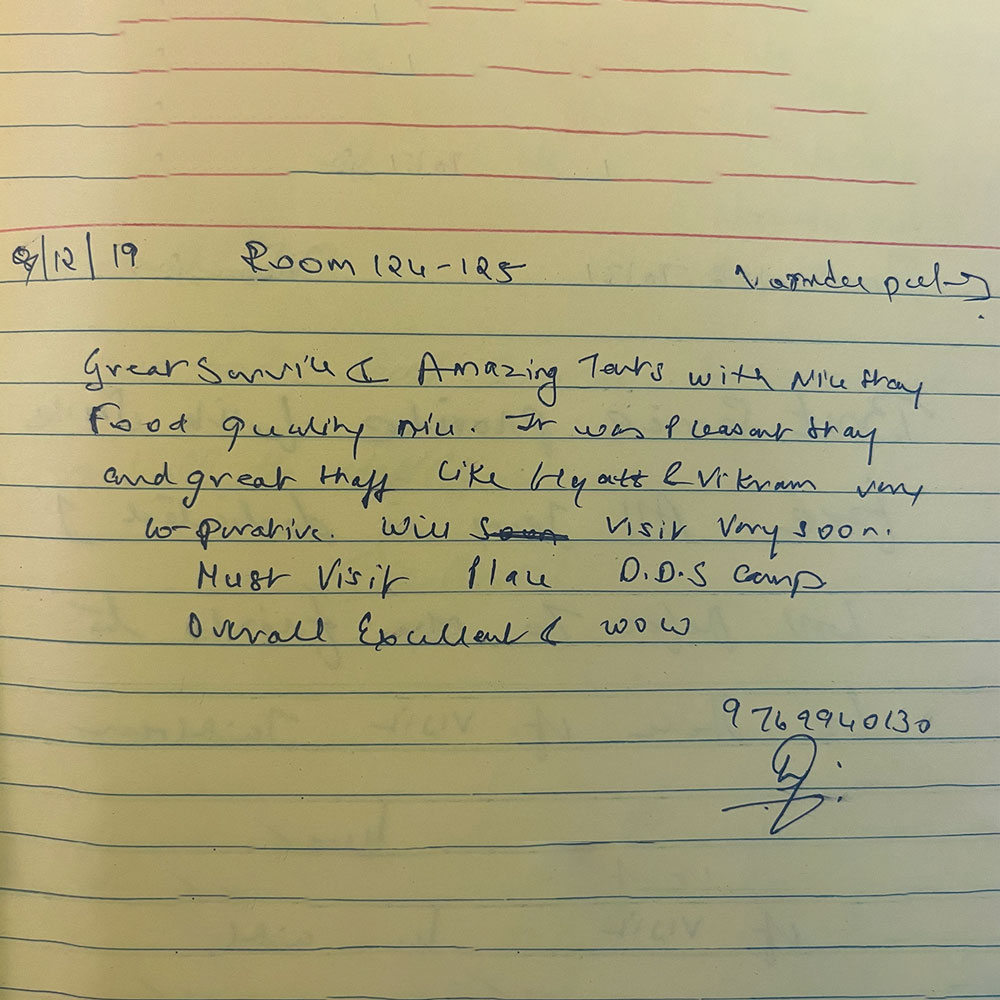 /12/19 Room 124-125 Varinder
Great Service & Amazing Tents with Nice Stay
Food quality nice. It was Pleasant Stay
and great staff like Hyatt & Vikram very
co-perative. Will Soon Visit Very soon.
Must Visit Place D.D.S Camp
Overall Excellent & WOW
9769940130